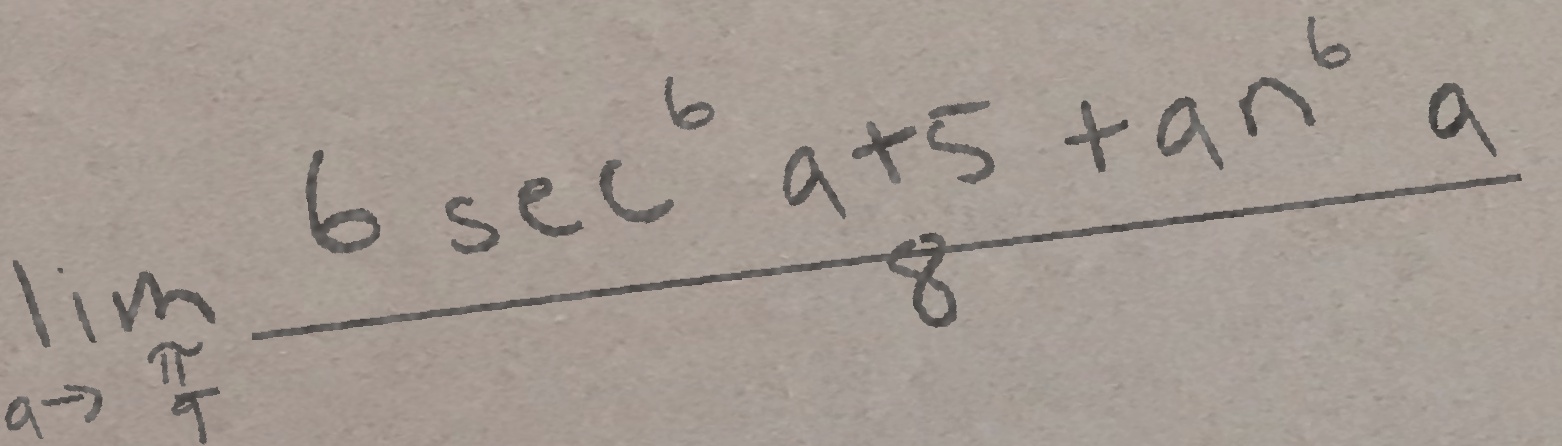 \lim_{a \to \frac{\pi}{9}} \frac{6 \sec^6 a + 5 \tan^6 a}{8}